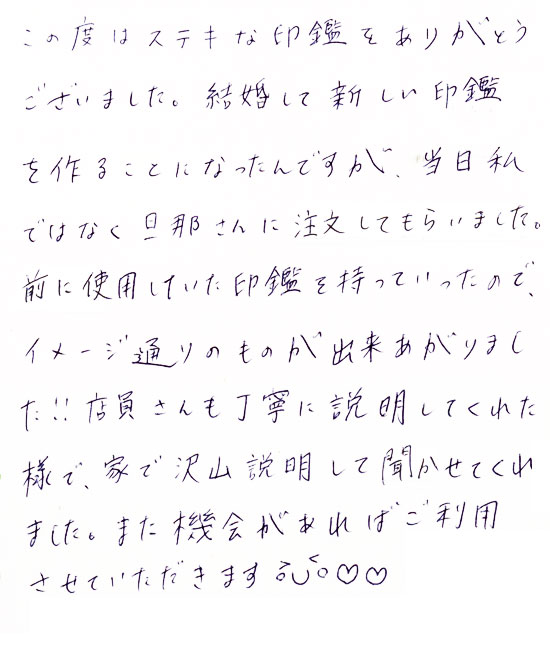 この度はステキな印鑑をありがとう
ございました。結婚して新しい印鑑
を作ることになったんですが、当日私
ではなく旦那さんに注文してもらいました。
前に使用していた印鑑を持っていったので、
イメージ通りのものが出来あがりまし
た!!店員さんも丁寧に説明してくれた
様で、家で沢山説明して聞かせてくれ
ました。また機会があればご利用
させていただきます♡♡